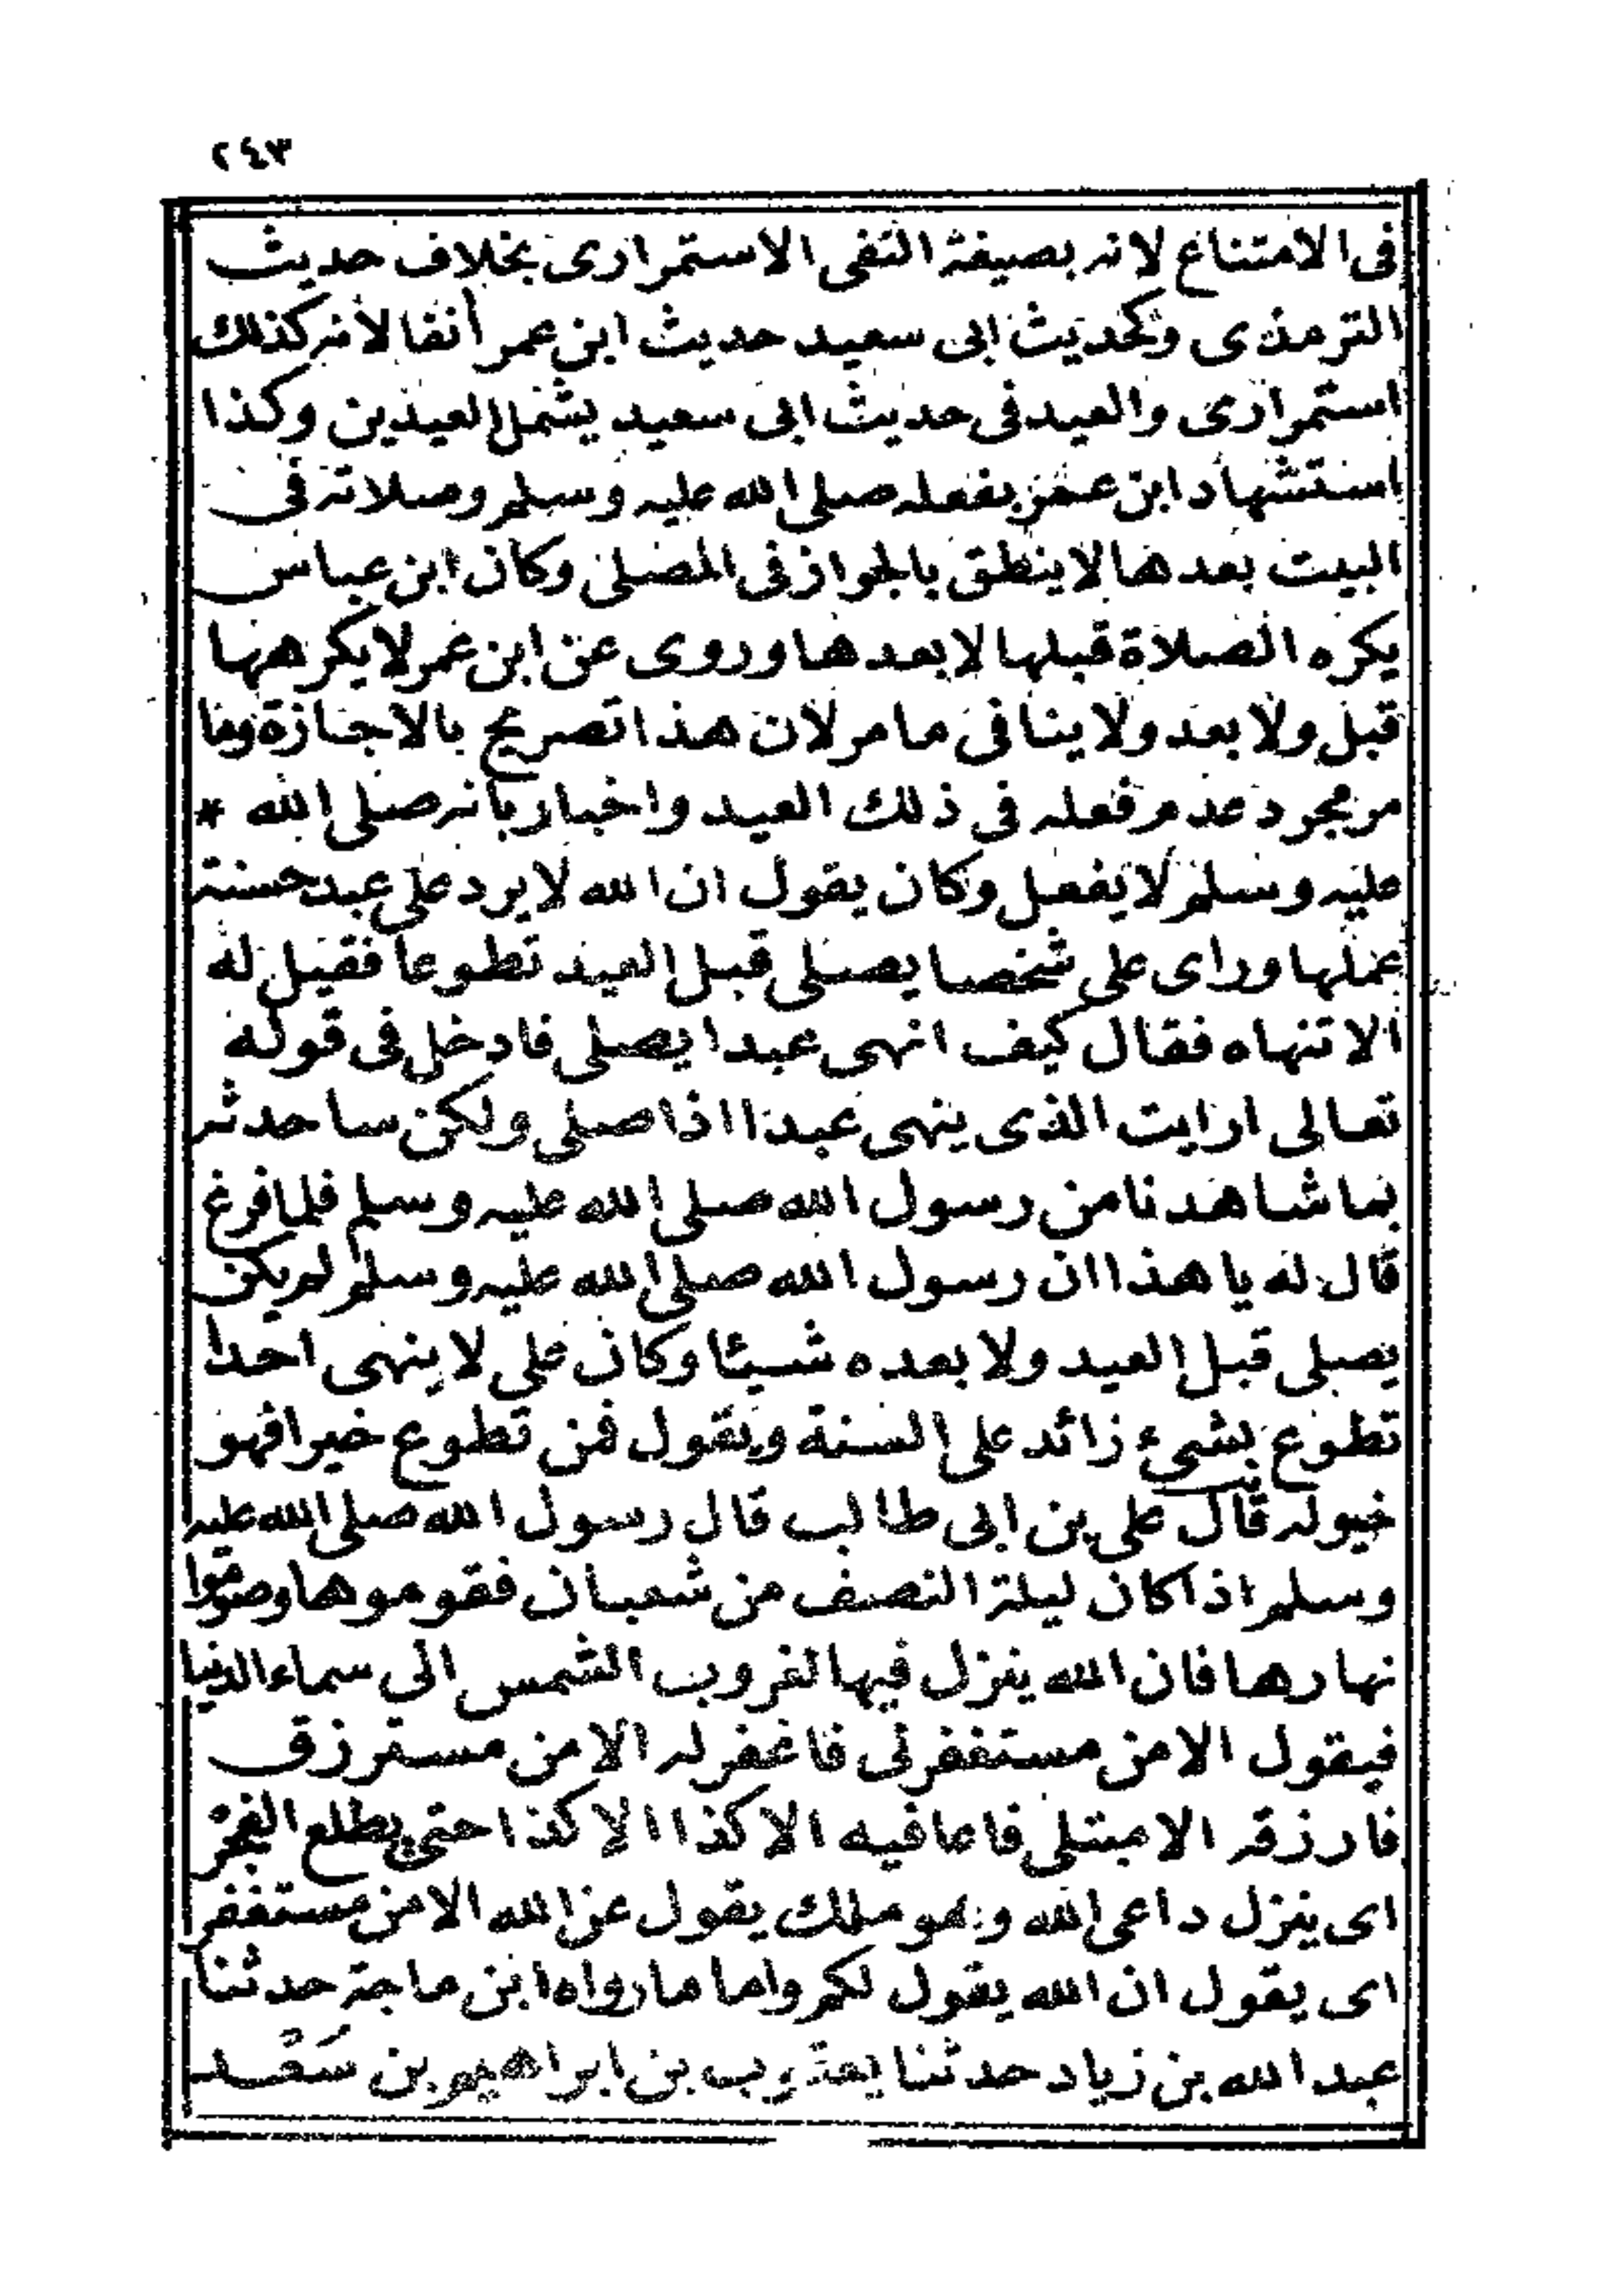 ٢٤٣
فى الامتناع لانه بصيغة النفى الاستمرارى بخلاف حديث
الترمذى وكحديث ابى سعيد حديث ابن عمر أنفا لانه كذلك
استمرارى والعيد فى حديث ابى سعيد يشمل العيدين وكذا
استشهاد ابن عمر بفعله صلى الله عليه وسلم وصلاته فى
البيت بعدها لا ينطق بالجواز فى المصلى وكان ابن عباس
يكره الصلاة قبلها لا بعدها وروى عن ابن عمر لا يكرهها
قبل ولا بعد ولا ينافى ما مر لان هذا تصريح بالاجازة وما
مر مجرد عدم فعله فى ذلك العيد واخبار بانه صلى الله *
عليه وسلم لا يفعل وكان يقول ان الله لا يرد على عبد حسنة
عملها وراى على شخصا يصلى قبل العيد تطوعا فقيل له
الا تنهاه فقال كيف انهى عبدا يصلى فادخل فى قوله
تعالى ارايت الذى ينهى عبدا اذا صلى ولكن ساحدثه
بما شاهدنا من رسول الله صلى الله عليه وسلم فلما فرغ
قال له يا هذا ان رسول الله صلى الله عليه وسلم لم يكن
يصلى قبل العيد ولا بعده شيئا وكان على لا ينهى احدا
تطوع بشىء زائد على السنة ويقول فمن تطوع خيرا فهو
خير له قال على بن ابى طالب قال رسول الله صلى الله عليه
وسلم اذا كان ليلة النصف من شعبان فقوموها وصوموا
نهارها فان الله ينزل فيها لغروب الشمس الى سماء الدنيا
فيقول الا من مستغفر لى فاغفر له الا من مسترزق
فارزقه الا مبتلى فاعافيه الا كذا الا كذا حتى يطلع الفجر
اى ينزل داعى الله وهو ملك يقول عن الله الا من مستغفر
اى يقول ان الله يقول لكم واما ما رواه ابن ماجة حدثنا
عبد الله بن زياد حدثنا يعقوب بن ابراهيم بن سَعْد